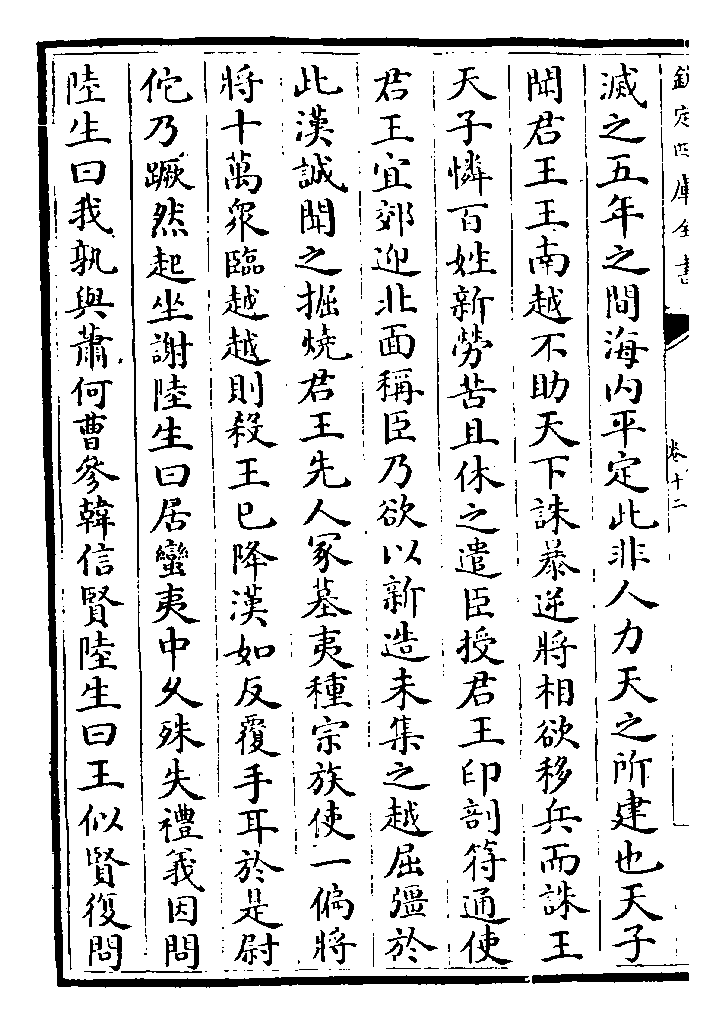 欽定四庫全書
卷十二
滅之五年之間海内平定此非人力天之所建也天子
聞君王王南越不助天下誅暴逆將相欲移兵而誅王
天子憐百姓新勞苦且休之遣臣授君王印剖符通使
君王宜郊迎北面稱臣乃欲以新造未集之越屈彊於
此漢誠聞之掘燒君王先人冢墓夷種宗族使一偏將
將十萬衆臨越越則殺王已降漢如反覆手耳於是尉
佗乃蹶然起坐謝陸生曰居蠻夷中久殊失禮義因問
陸生曰我孰與蕭何曹參韓信賢陸生曰王似賢復問